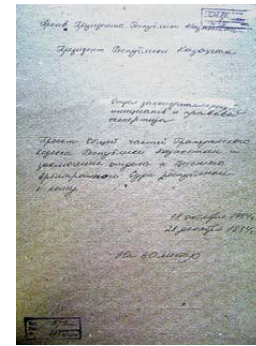 Архив Президента Республики Казахстан
Президент Республики Казахстан
Отдел законодательных
инициатив и правовой
экспертизы
Проект Общей части Гражданского
кодекса Республики Казахстан и
заключение отдела и Высшего
Арбитражного Суда республики
к нему
18 октября 1994г.
28 декабря 1994г.
На листах